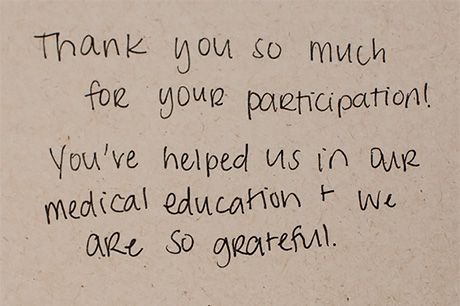 Thank you so much
for your participation!
You've helped us in our
medical education + we
are so grateful.